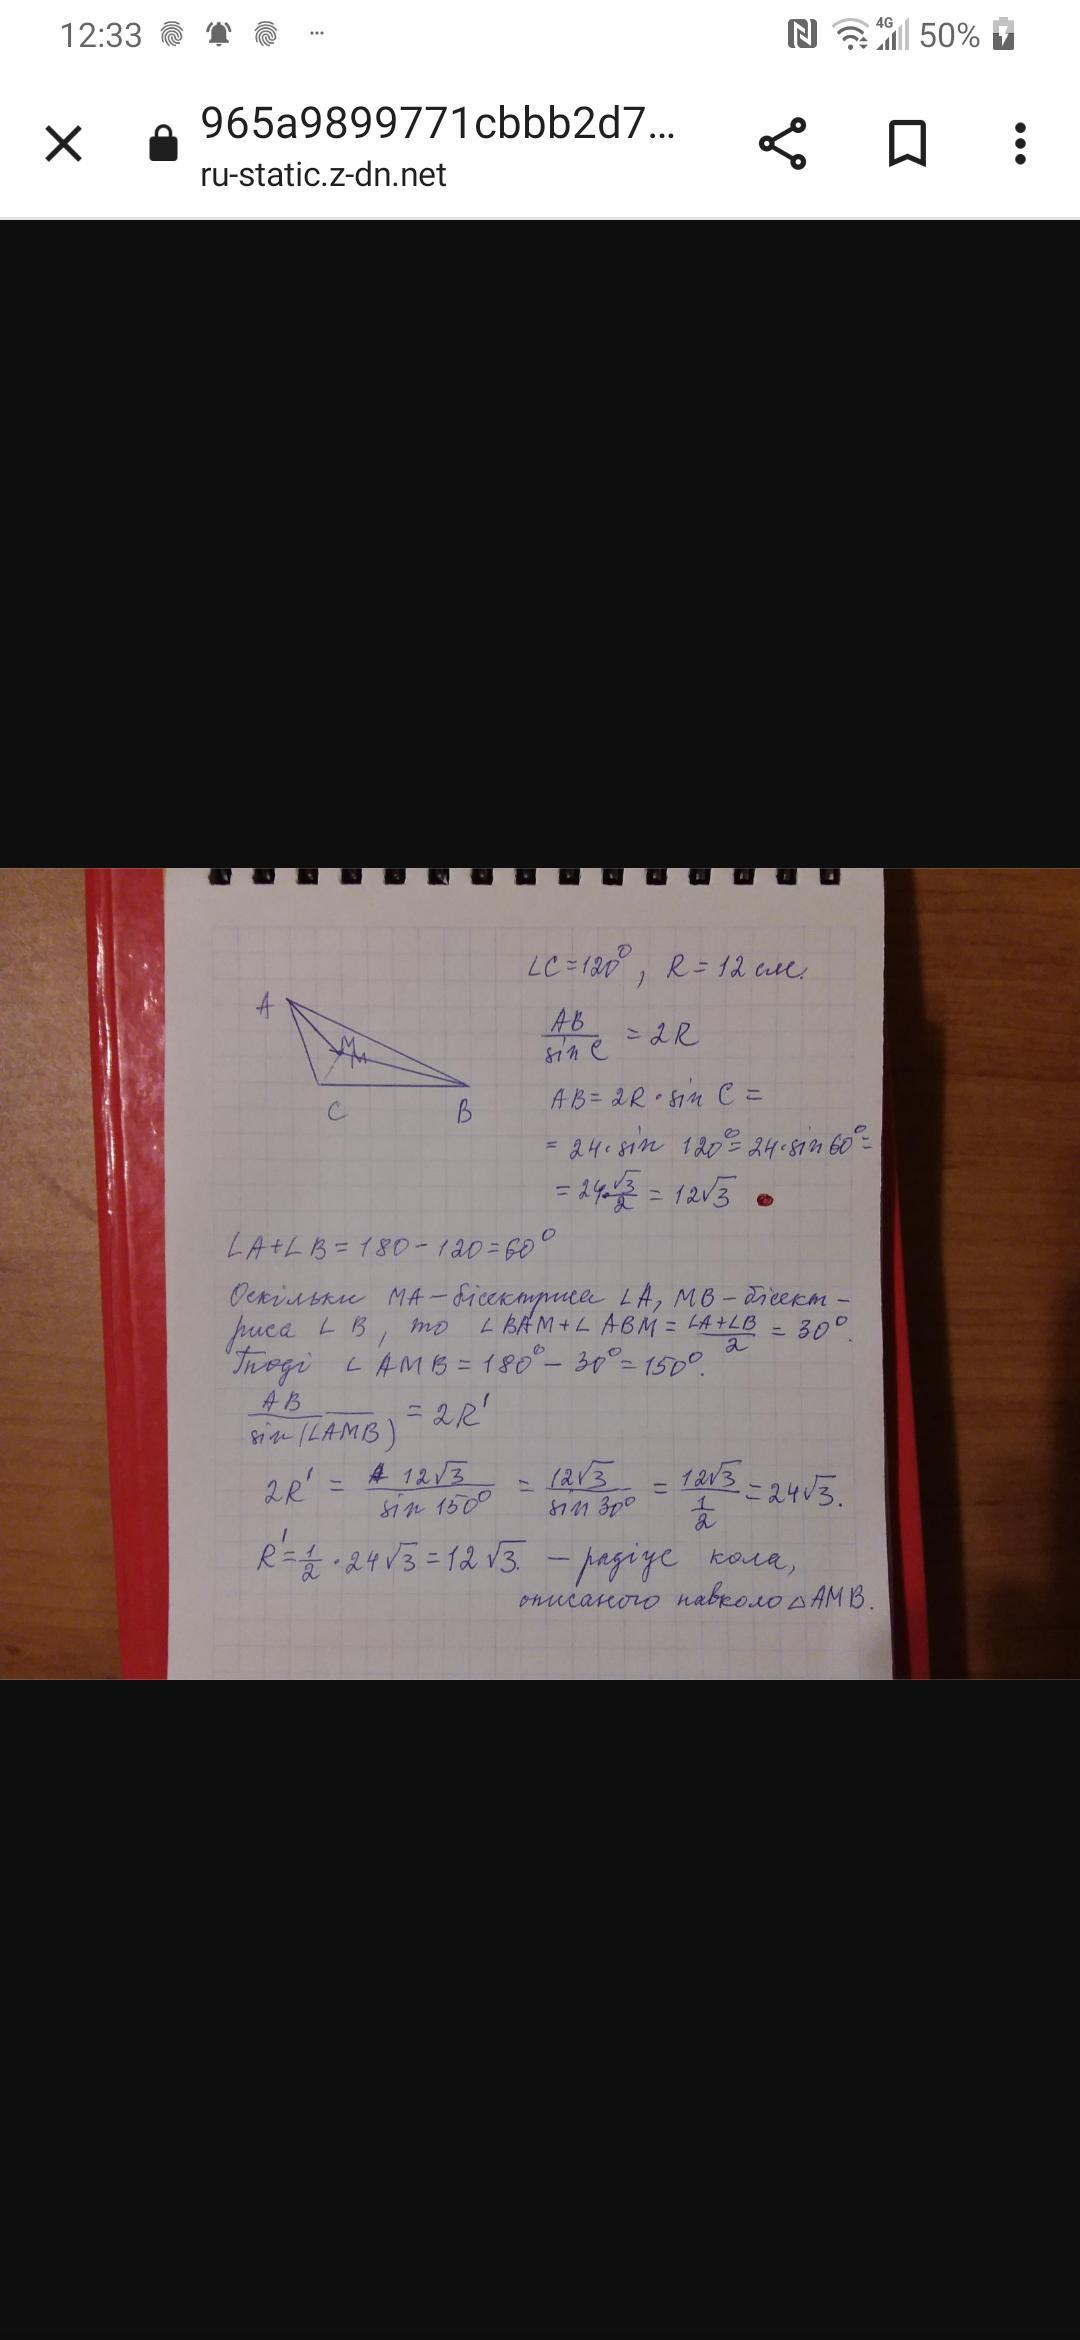 12:33 ... 4G 50%
965a9899771cbbb2d7...
ru-static.z-dn.net
∠C=120°, R=12 см.
A
AB/sin C = 2R
M
AB=2R·sin C =
C B
= 24·sin 120°=24·sin60°=
= 24·√3/2 = 12√3
∠A+∠B=180-120=60°
Оскільки MA-бісектриса ∠A, MB-бісект-
риса ∠B, то ∠BAM+∠ABM=(∠A+∠B)/2=30°.
Тоді ∠AMB=180°-30°=150°.
AB/sin(∠AMB) = 2R'
2R' = 12√3/sin 150° = 12√3/sin 30° = 12√3/(1/2) = 24√3.
R'=1/2·24√3=12√3. - радіус кола,
описаного навколо △AMB.